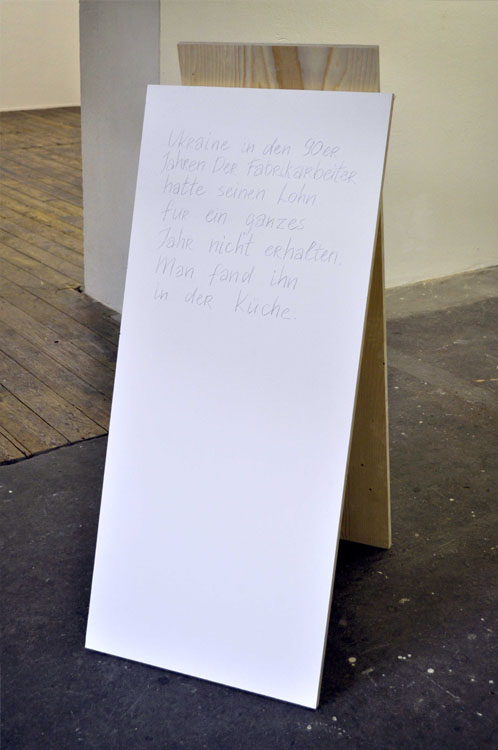 Ukraine in den 90er
Jahren Der Fabrikarbeiter
hatte seinen Lohn
fur ein ganzes
Jahr nicht erhalten.
Man fand ihn
in der Küche.